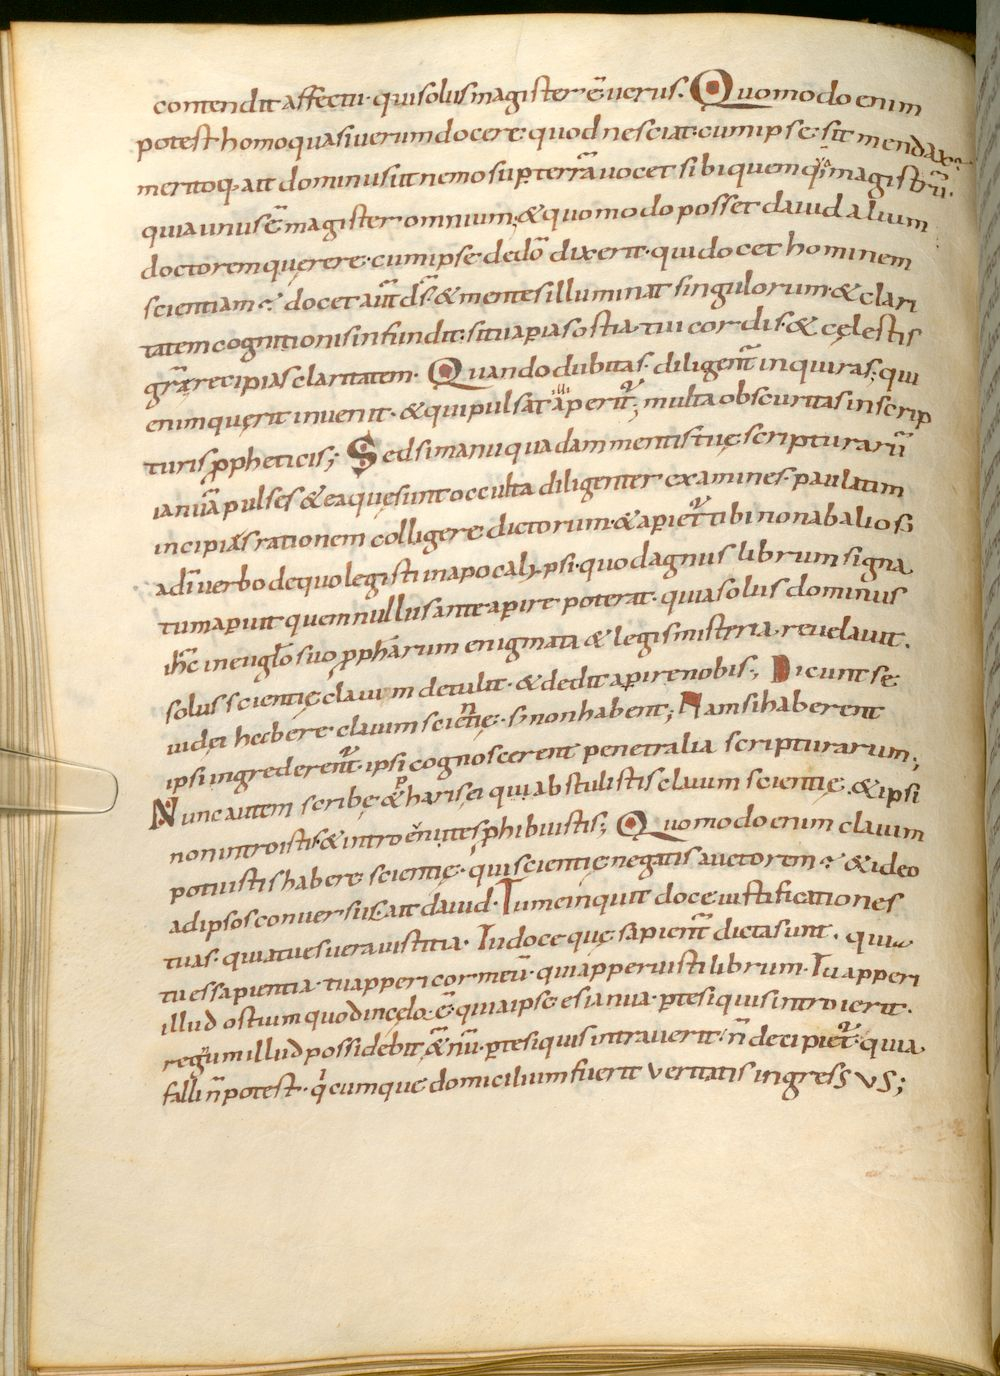 contendit affectu· qui solus magister ē uerus. Quomodo enim
potest homo quasi uerum docere· quod nesciat· cum ipse sit mendax?
meritoq· ait dominus ut nemo sup terrā uocet sibi quemquā magistrū·
quia unus ē magister omnium; & quomodo posset dauid alium
doctorem quęrere· cum ipse de dō dixerit· qui docet hominem
scientiam? docet aūt dš· & mentes illuminat singulorum· & clari
tatem cognitionis infundit· si tu aperias ostia tui cordis· & cęlestis
grāę recipias claritatem· Quando dubitas· diligent̄ inquiras; qui
enim quęrit inuenit· & qui pulsat aperit̄; multa obscuritas in scrip
turis ꝓpheticis; Sed si manu quadam mentis tuę scripturarū
ianuā pulses & ea quę sunt occulta diligenter examines· paulatim
incipias rationem colligere dictorum· & apiet̄ tibi non ab alio s;
a dī uerbo de quo legisti in apocalypsi· quod agnus librum signa
tum aperuit quem nullus ante aperire poterat· quia solus dominus
ihc̄ in euglō suo ꝓphārum enigmata & legis misteria reuelauit·
solus scientię clauim detulit· & dedit aperire nobis; Dicunt se
iudei hecbere clauim scientię· s; non habent; Nam si haberent
ipsi ingrederent̄· ipsi cognoscerent penetralia scripturarum;
Nunc autem scribę & pharisei qui abstulistis clauim scientię· & ipsi
non introistis· & introeuntes ꝓhibuistis; Quomodo enim clauim
potuistis habere scientię· qui scientię negatis auctorem? & ideo
ad ipsos conuersus· ait dauid· Tu me inquit doce iustificationes
tuas· quia tu es uera iustitia· Tu doce quę sapient̄ dicta sunt· quia
tu es sapientia· tu apperi cor meū· qui apperuisti librum· Tu apperi
illud ostium quod in cęlo· ē quia ipse es ianua· p te si quis introierit·
regnum illud possidebit ętnū· p te si quis intrauerit n̄ decipiet̄· quia
falli n̄ potest· qicumque domicilium fuerit ueritatis ingressus;